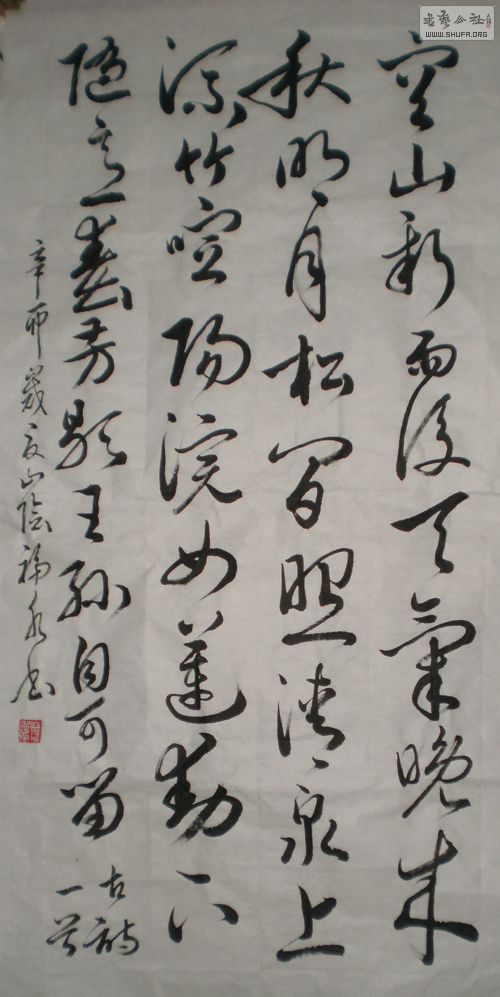 書藝公社
WWW.SHUFA.ORG
空山新雨後天氣晚来
秋明月松間照清泉上
流竹喧歸浣女蓮動下
隨意春芳歇王孫自可留
古詩
一首
辛卯歲夏山陰福書